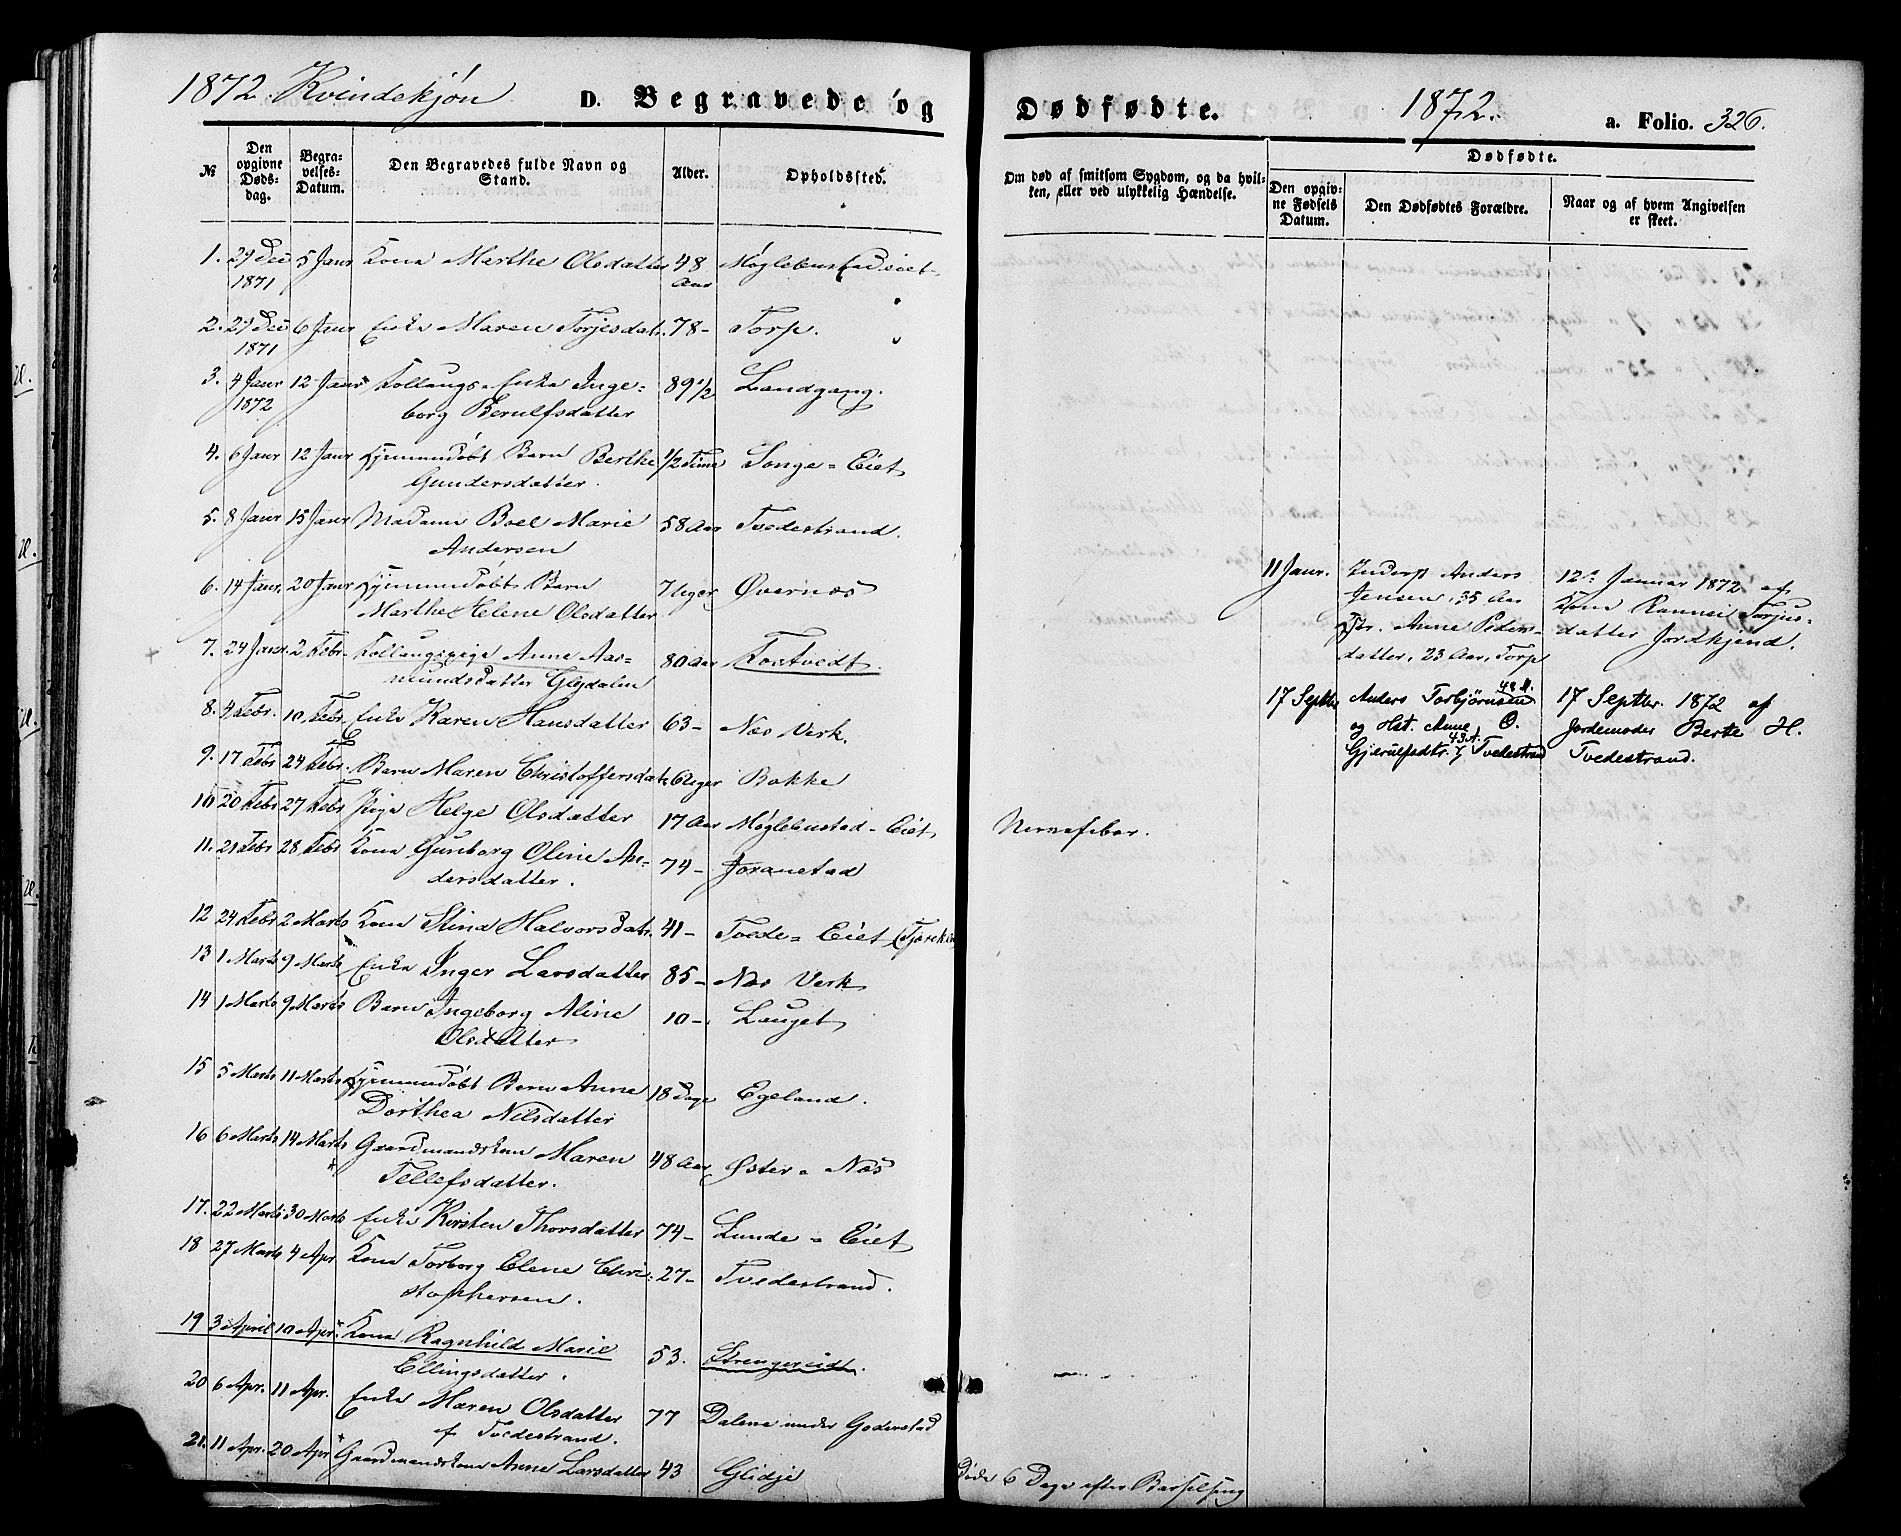 1872. Kvindekjøn D. Begravede og
№
Den opgivne Døds-dag.
Begra-velses-Datum.
Den Begravedes fulde Navn og Stand.
Alder.
Opholdssted.
1. 29 Dec 5 Janr Kona Marthe Olsdatter 48 Møglebustadeiet
1871 Aar
2. 29 Dec 6 Janr Enke Maren Torjesdatr. 78 - Torp.
1871
3. 4 Janr 12 Janr Follaugs-Enke Inge= 89 1/2 Landgang.
1872 borg Berulfsdatter
4. 6 Janr 12 Janr Hjemmedøbt Barn Berthe 1/2 Time Songe = Eiet
Gundersdatter.
5. 8 Janr 15 Janr Madame Boel Marie 58 Aar Tvedestrand.
Andersen
6. 14 Janr. 20 Janr Hjemmedøbt Barn 7 Uger Øvernæs
Marthe Helene Olsdatter
7. 24 Janr. 2 Febr. Follaugspige Anne Aas= 80 Aar Fostvedt.
mundsdatter Glydalen
8. 4 Febr. 10 Febr. Enke Karen Hansdatter 63 - Næs Verk.
9. 17 Febr 24 Febr. Barn Maren Christoffersdatr. 6 Uger Bakke
10 20 Febr 27 Febr Pige Helge Olsdatter 17 Aar Møglebustad - Eiet
11. 21 Febr 28 Febr Kona Gunborg Oline An= 74 - Joranstad
dersdatter.
12 24 Febr 2 Marts Kona Stina Halvorsdatr. 41 - Tvede = Eiet
13 1 Marts 9 Marts Enke Inger Larsdatter 85 - Næs Verk
14 1 Marts 9 Marts Barn Ingeborg Aline 10 - Lauget
Olsdatter
15 5 Marts 11 Marts Hjemmedøbt Barn Anne 18 Dage Egeland.
Dorthea Nilsdatter
16 6 Marts 14 Marts Gaardmandskone Maren 48 Aar Øster = Næs
Tellefsdatter.
17. 22 Marts 30 Marts Enke Kirsten Thorsdatter 74 - Lunde = Eiet
18 27 Marts 4 Apr Kona Torborg Elene Chri= 27 - Tvedestrand.
stophersen.
19 3 April 10 Apr. Kona Ragnhild Marie 53. Strengereidt.
Ellingsdatter.
20 6 Apr. 11 Apr. Enke Maren Olsdatter 77 Dalene under Goderstad
af Tvedestrand.
21. 11 Apr. 20 Apr Gaardmandskone Anne Larsdatter 43 Glidje
Dødfødte. 1872. a. Folio. 326.
Om død af smitsom Sygdom, og da hvil-ken, eller ved ulykkelig Hændelse.
Dødfødte.
Den opgiv-ne Fødsels Datum.
Den Dødfødtes Forældre.
Naar og af hvem Angivelsen er skeet.
11 Janr. Inderst Anders 12te Januar 1872 af
Jensen, 35 Aar Kone Rannei Torjus=
Anne Peders= datter Jordkjend.
datter, 23 Aar, Torp
17 Septbr Anders Torbjørnsen 48 A. 17 Septbr. 1872 af
og Hst. Anne O. Jordemoder Berte H.
Gjerulfsdtr. 43 A. Tvedestrand Tvedestrand.
Nervefeber.
Døde 6 Dage efter Barselseng